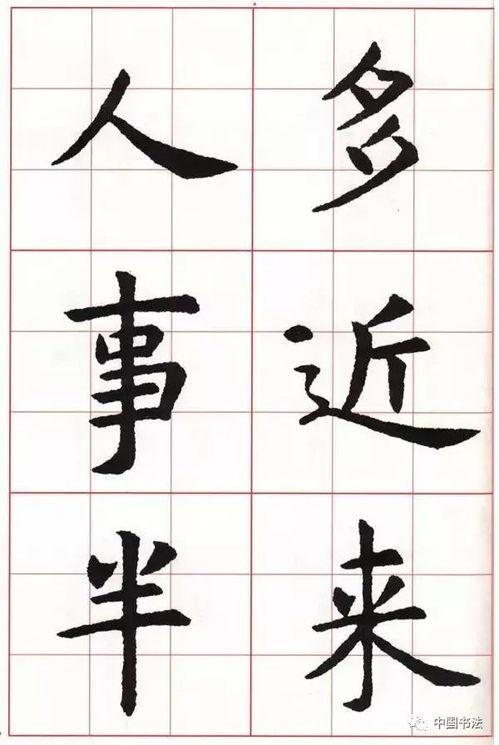 多近来
人事半
中国书法